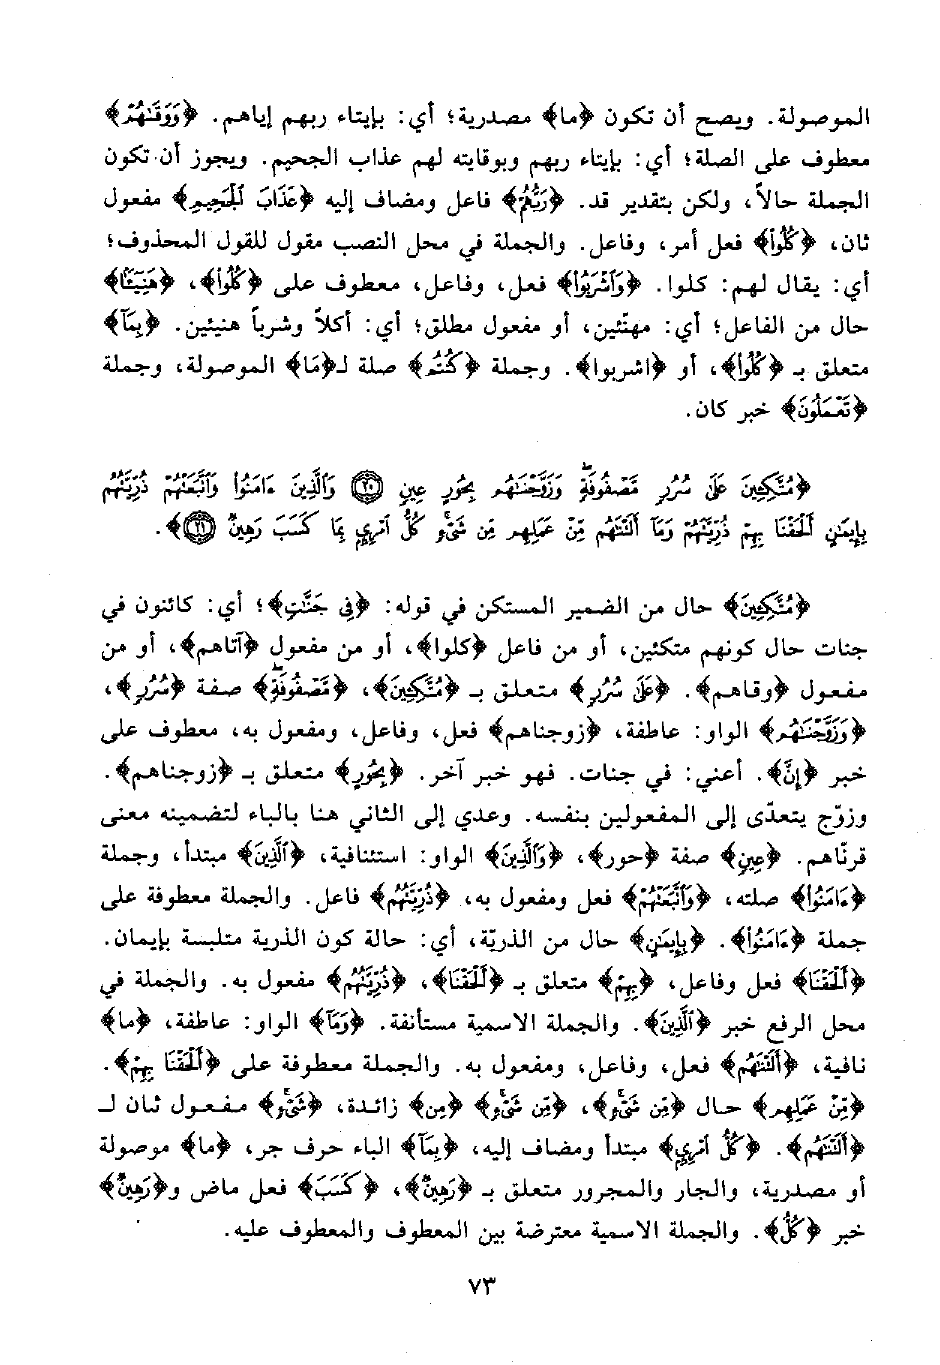 الموصولة. ويصح أن تكون ﴿ما﴾ مصدرية؛ أي: بإيتاء ربهم إياهم. ﴿وَوَقَىٰهُمْ﴾
معطوف على الصلة؛ أي: بإيتاء ربهم وبوقايته لهم عذاب الجحيم. ويجوز أن تكون
الجملة حالاً، ولكن بتقدير قد. ﴿رَبُّهُمْ﴾ فاعل ومضاف إليه ﴿عَذَابَ ٱلْجَحِيمِ﴾ مفعول
ثان، ﴿كُلُوا۟﴾ فعل أمر، وفاعل. والجملة في محل النصب مقول للقول المحذوف؛
أي: يقال لهم: كلوا. ﴿وَٱشْرَبُوا۟﴾ فعل، وفاعل، معطوف على ﴿كُلُوا۟﴾، ﴿هَنِيٓـًٔۢا﴾
حال من الفاعل؛ أي: مهنّئين، أو مفعول مطلق؛ أي: أكلاً وشرباً هنيئين. ﴿بِمَآ﴾
متعلق بـ ﴿كُلُوا۟﴾، أو ﴿اشربوا﴾. وجملة ﴿كُنتُمْ﴾ صلة لـ﴿مَا﴾ الموصولة، وجملة
﴿تَعْمَلُونَ﴾ خبر كان.
﴿مُتَّكِـِٔينَ عَلَىٰ سُرُرٍ مَّصْفُوفَةٍ ۖ وَزَوَّجْنَٰهُم بِحُورٍ عِينٍ ٢٠ وَٱلَّذِينَ ءَامَنُوا۟ وَٱتَّبَعَتْهُمْ ذُرِّيَّتُهُم
بِإِيمَٰنٍ أَلْحَقْنَا بِهِمْ ذُرِّيَّتَهُمْ وَمَآ أَلَتْنَٰهُم مِّنْ عَمَلِهِم مِّن شَىْءٍ ۚ كُلُّ ٱمْرِئٍۭ بِمَا كَسَبَ رَهِينٌ ٢١﴾.
﴿مُتَّكِـِٔينَ﴾ حال من الضمير المستكن في قوله: ﴿فِى جَنَّٰتٍ﴾؛ أي: كائنون في
جنات حال كونهم متكئين، أو من فاعل ﴿كلوا﴾، أو من مفعول ﴿آتاهم﴾، أو من
مفعول ﴿وقاهم﴾. ﴿عَلَىٰ سُرُرٍ﴾ متعلق بـ ﴿مُتَّكِـِٔينَ﴾، ﴿مَّصْفُوفَةٍ ۖ﴾ صفة ﴿سُرُرٍ﴾،
﴿وَزَوَّجْنَٰهُم﴾ الواو: عاطفة، ﴿زوجناهم﴾ فعل، وفاعل، ومفعول به، معطوف على
خبر ﴿إِنَّ﴾. أعني: في جنات. فهو خبر آخر. ﴿بِحُورٍ﴾ متعلق بـ ﴿زوجناهم﴾.
وزوّج يتعدّى إلى المفعولين بنفسه. وعدي إلى الثاني هنا بالباء لتضمينه معنى
قرنّاهم. ﴿عِينٍ﴾ صفة ﴿حور﴾، ﴿وَٱلَّذِينَ﴾ الواو: استئنافية، ﴿ٱلَّذِينَ﴾ مبتدأ، وجملة
﴿ءَامَنُوا۟﴾ صلته، ﴿وَٱتَّبَعَتْهُمْ﴾ فعل ومفعول به، ﴿ذُرِّيَّتُهُم﴾ فاعل. والجملة معطوفة على
جملة ﴿ءَامَنُوا۟﴾. ﴿بِإِيمَٰنٍ﴾ حال من الذريّة، أي: حالة كون الذرية متلبسة بإيمان.
﴿أَلْحَقْنَا﴾ فعل وفاعل، ﴿بِهِمْ﴾ متعلق بـ ﴿أَلْحَقْنَا﴾، ﴿ذُرِّيَّتَهُمْ﴾ مفعول به. والجملة في
محل الرفع خبر ﴿ٱلَّذِينَ﴾. والجملة الاسمية مستأنفة. ﴿وَمَآ﴾ الواو: عاطفة، ﴿ما﴾
نافية، ﴿أَلَتْنَٰهُم﴾ فعل، وفاعل، ومفعول به. والجملة معطوفة على ﴿أَلْحَقْنَا بِهِمْ﴾.
﴿مِّنْ عَمَلِهِم﴾ حال ﴿مِّن شَىْءٍ ۚ﴾، ﴿مِّن شَىْءٍ ۚ﴾ ﴿مِن﴾ زائدة، ﴿شَىْءٍ ۚ﴾ مفعول ثان لـ
﴿أَلَتْنَٰهُم﴾. ﴿كُلُّ ٱمْرِئٍۭ﴾ مبتدأ ومضاف إليه، ﴿بِمَآ﴾ الباء حرف جر، ﴿ما﴾ موصولة
أو مصدرية، والجار والمجرور متعلق بـ ﴿رَهِينٌ﴾، ﴿كَسَبَ﴾ فعل ماض و﴿رَهِينٌ﴾
خبر ﴿كُلُّ﴾. والجملة الاسمية معترضة بين المعطوف والمعطوف عليه.
٧٣